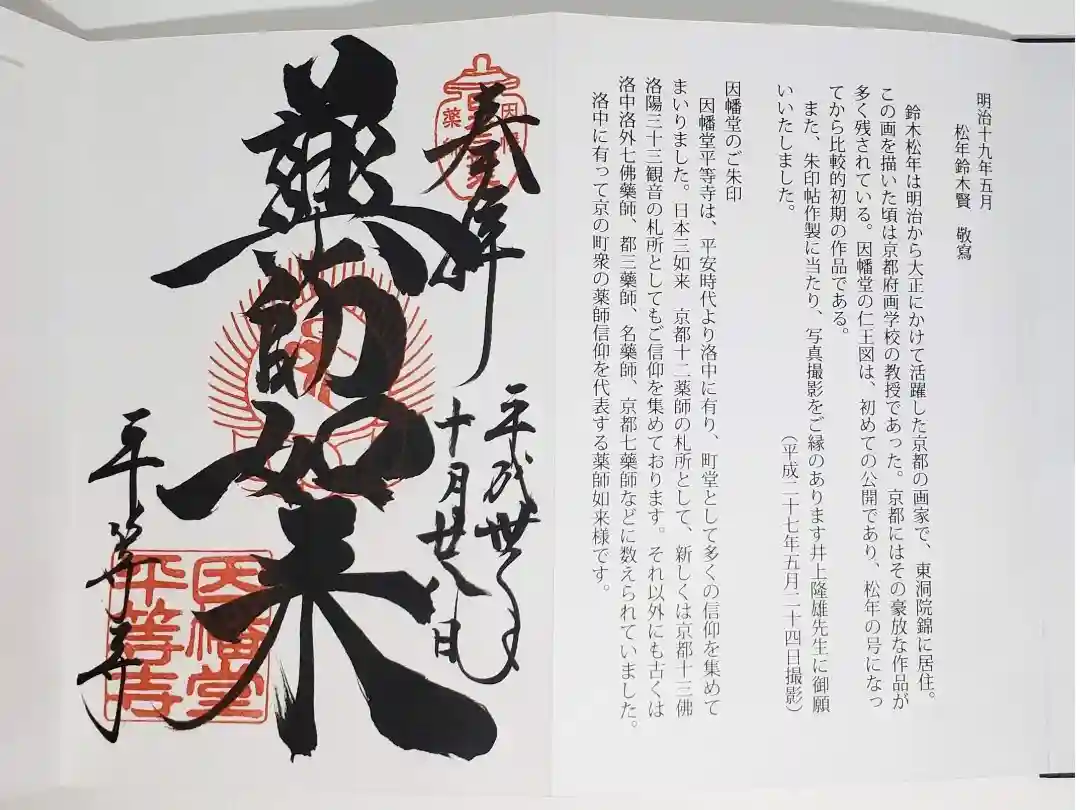 明治十九年五月
松年鈴木賢　敬寫
鈴木松年は明治から大正にかけて活躍した京都の画家で、東洞院錦に居住。
この画を描いた頃は京都府画学校の教授であった。京都にはその豪放な作品が
多く残されている。因幡堂の仁王図は、初めての公開であり、松年の号になっ
てから比較的初期の作品である。
また、朱印帖作製に当たり、写真撮影をご縁のあります井上隆雄先生に御願
いいたしました。
（平成二十七年五月二十四日撮影）
因幡堂のご朱印
因幡堂平等寺は、平安時代より洛中に有り、町堂として多くの信仰を集めて
まいりました。日本三如来　京都十二薬師の札所として、新しくは京都十三佛
洛陽三十三観音の札所としてもご信仰を集めております。それ以外にも古くは
洛中洛外七佛藥師、都三藥師、名藥師、京都七藥師などに数えられていました。
洛中に有って京の町衆の薬師信仰を代表する薬師如来様です。
奉拝
平成丗年
十月廿八日
薬師如来
平等寺
因幡堂
平等寺